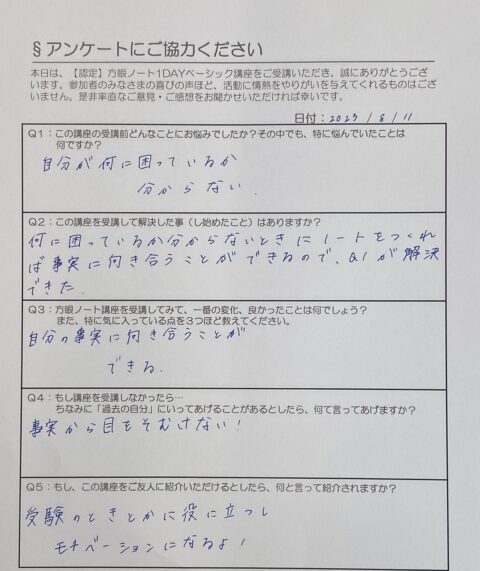 §アンケートにご協力ください
本日は、【認定】方眼ノート1DAYベーシック講座をご受講いただき、誠にありがとうござ
います。参加者のみなさまの喜びの声ほど、活動に情熱をやりがいを与えてくれるものはござ
いません。是非率直なご意見・ご感想をお聞かせいただければ幸いです。
日付：2023/8/11
Q1：この講座の受講前どんなことにお悩みでしたか？その中でも、特に悩んでいたことは
何ですか？
自分が何に困っているか
分からない.
Q2：この講座を受講して解決した事（し始めたこと）はありますか？
何に困っているか分からないときにノートをつくれ
ば事実に向き合うことができるので、Q1が解決
できた.
Q3：方眼ノート講座を受講してみて、一番の変化、良かったことは何でしょう？
また、特に気に入っている点を３つほど教えてください。
自分の事実に向き合うことが
できる.
Q4：もし講座を受講しなかったら…
ちなみに「過去の自分」にいってあげることがあるとしたら、何て言ってあげますか？
事実から目をそむけない！
Q5：もし、この講座をご友人に紹介いただけるとしたら、何と言って紹介されますか？
受験のときとかに役に立つし
モチベーションになるよ！